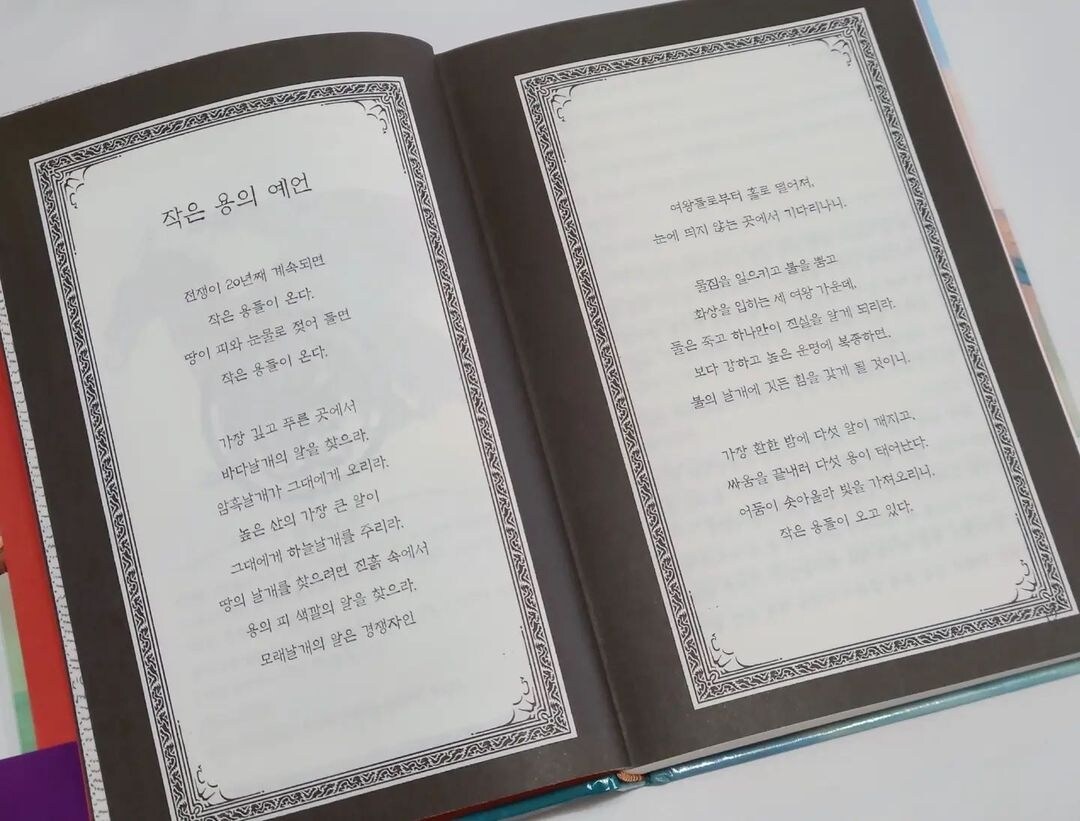 작은 용의 예언
전쟁이 20년째 계속되면
작은 용들이 온다.
땅이 피와 눈물로 젖어 들면
작은 용들이 온다.
가장 깊고 푸른 곳에서
바다날개의 알을 찾으라.
암흑날개가 그대에게 오리라.
높은 산의 가장 큰 알이
그대에게 하늘날개를 주리라.
땅의 날개를 찾으려면 진흙 속에서
용의 피 색깔의 알을 찾으라.
모래날개의 알은 경쟁자인
여왕들로부터 홀로 떨어져,
눈에 띄지 않는 곳에서 기다리나니.
물집을 일으키고 불을 뿜고
화상을 입히는 세 여왕 가운데,
둘은 죽고 하나만이 진실을 알게 되리라.
보다 강하고 높은 운명에 복종하면,
불의 날개에 깃든 힘을 갖게 될 것이니.
가장 환한 밤에 다섯 알이 깨지고,
싸움을 끝내러 다섯 용이 태어난다.
어둠이 솟아올라 빛을 가져오리니.
작은 용들이 오고 있다.